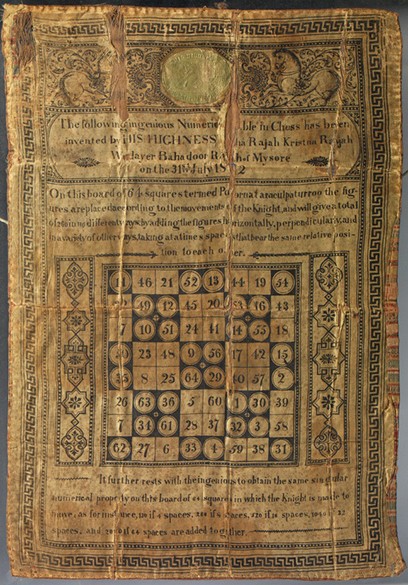 The following ingenious Numerical Table in Chess has been
invented by HIS HIGHNESS Maha Rajah Kristna Rajah
Wodayer Bahadoor Rajah of Mysore
on the 31st July 18 2
On this board of 64 squares termed the fig-
ures are placed according to the movements of the Knight, and will give a total
of 260 in different ways by adding the figures horizontally, perpendicularly, and
in a variety of other ways, taking at a time spaces that bear the same relative posi-
tion to each other.
11 46 21 52 13 44 19 54
49 12 45 20 53 16 43
10 51 24 41 14 55 18
50 23 48 9 56 17 42 15
35 8 25 64 29 40 57 2
26 63 36 5 60 1 30 39
7 34 61 28 37 32 3 58
62 27 6 33 4 59 38 31
It further rests with the ingenious to obtain the same singular
numerical property on this board of 64 squares in which the Knight is made to
move, as for instance, if spaces, 260 if 8 spaces, 520 if 16 spaces, 1040 if 32
spaces, and 2080 if 64 spaces are added together.